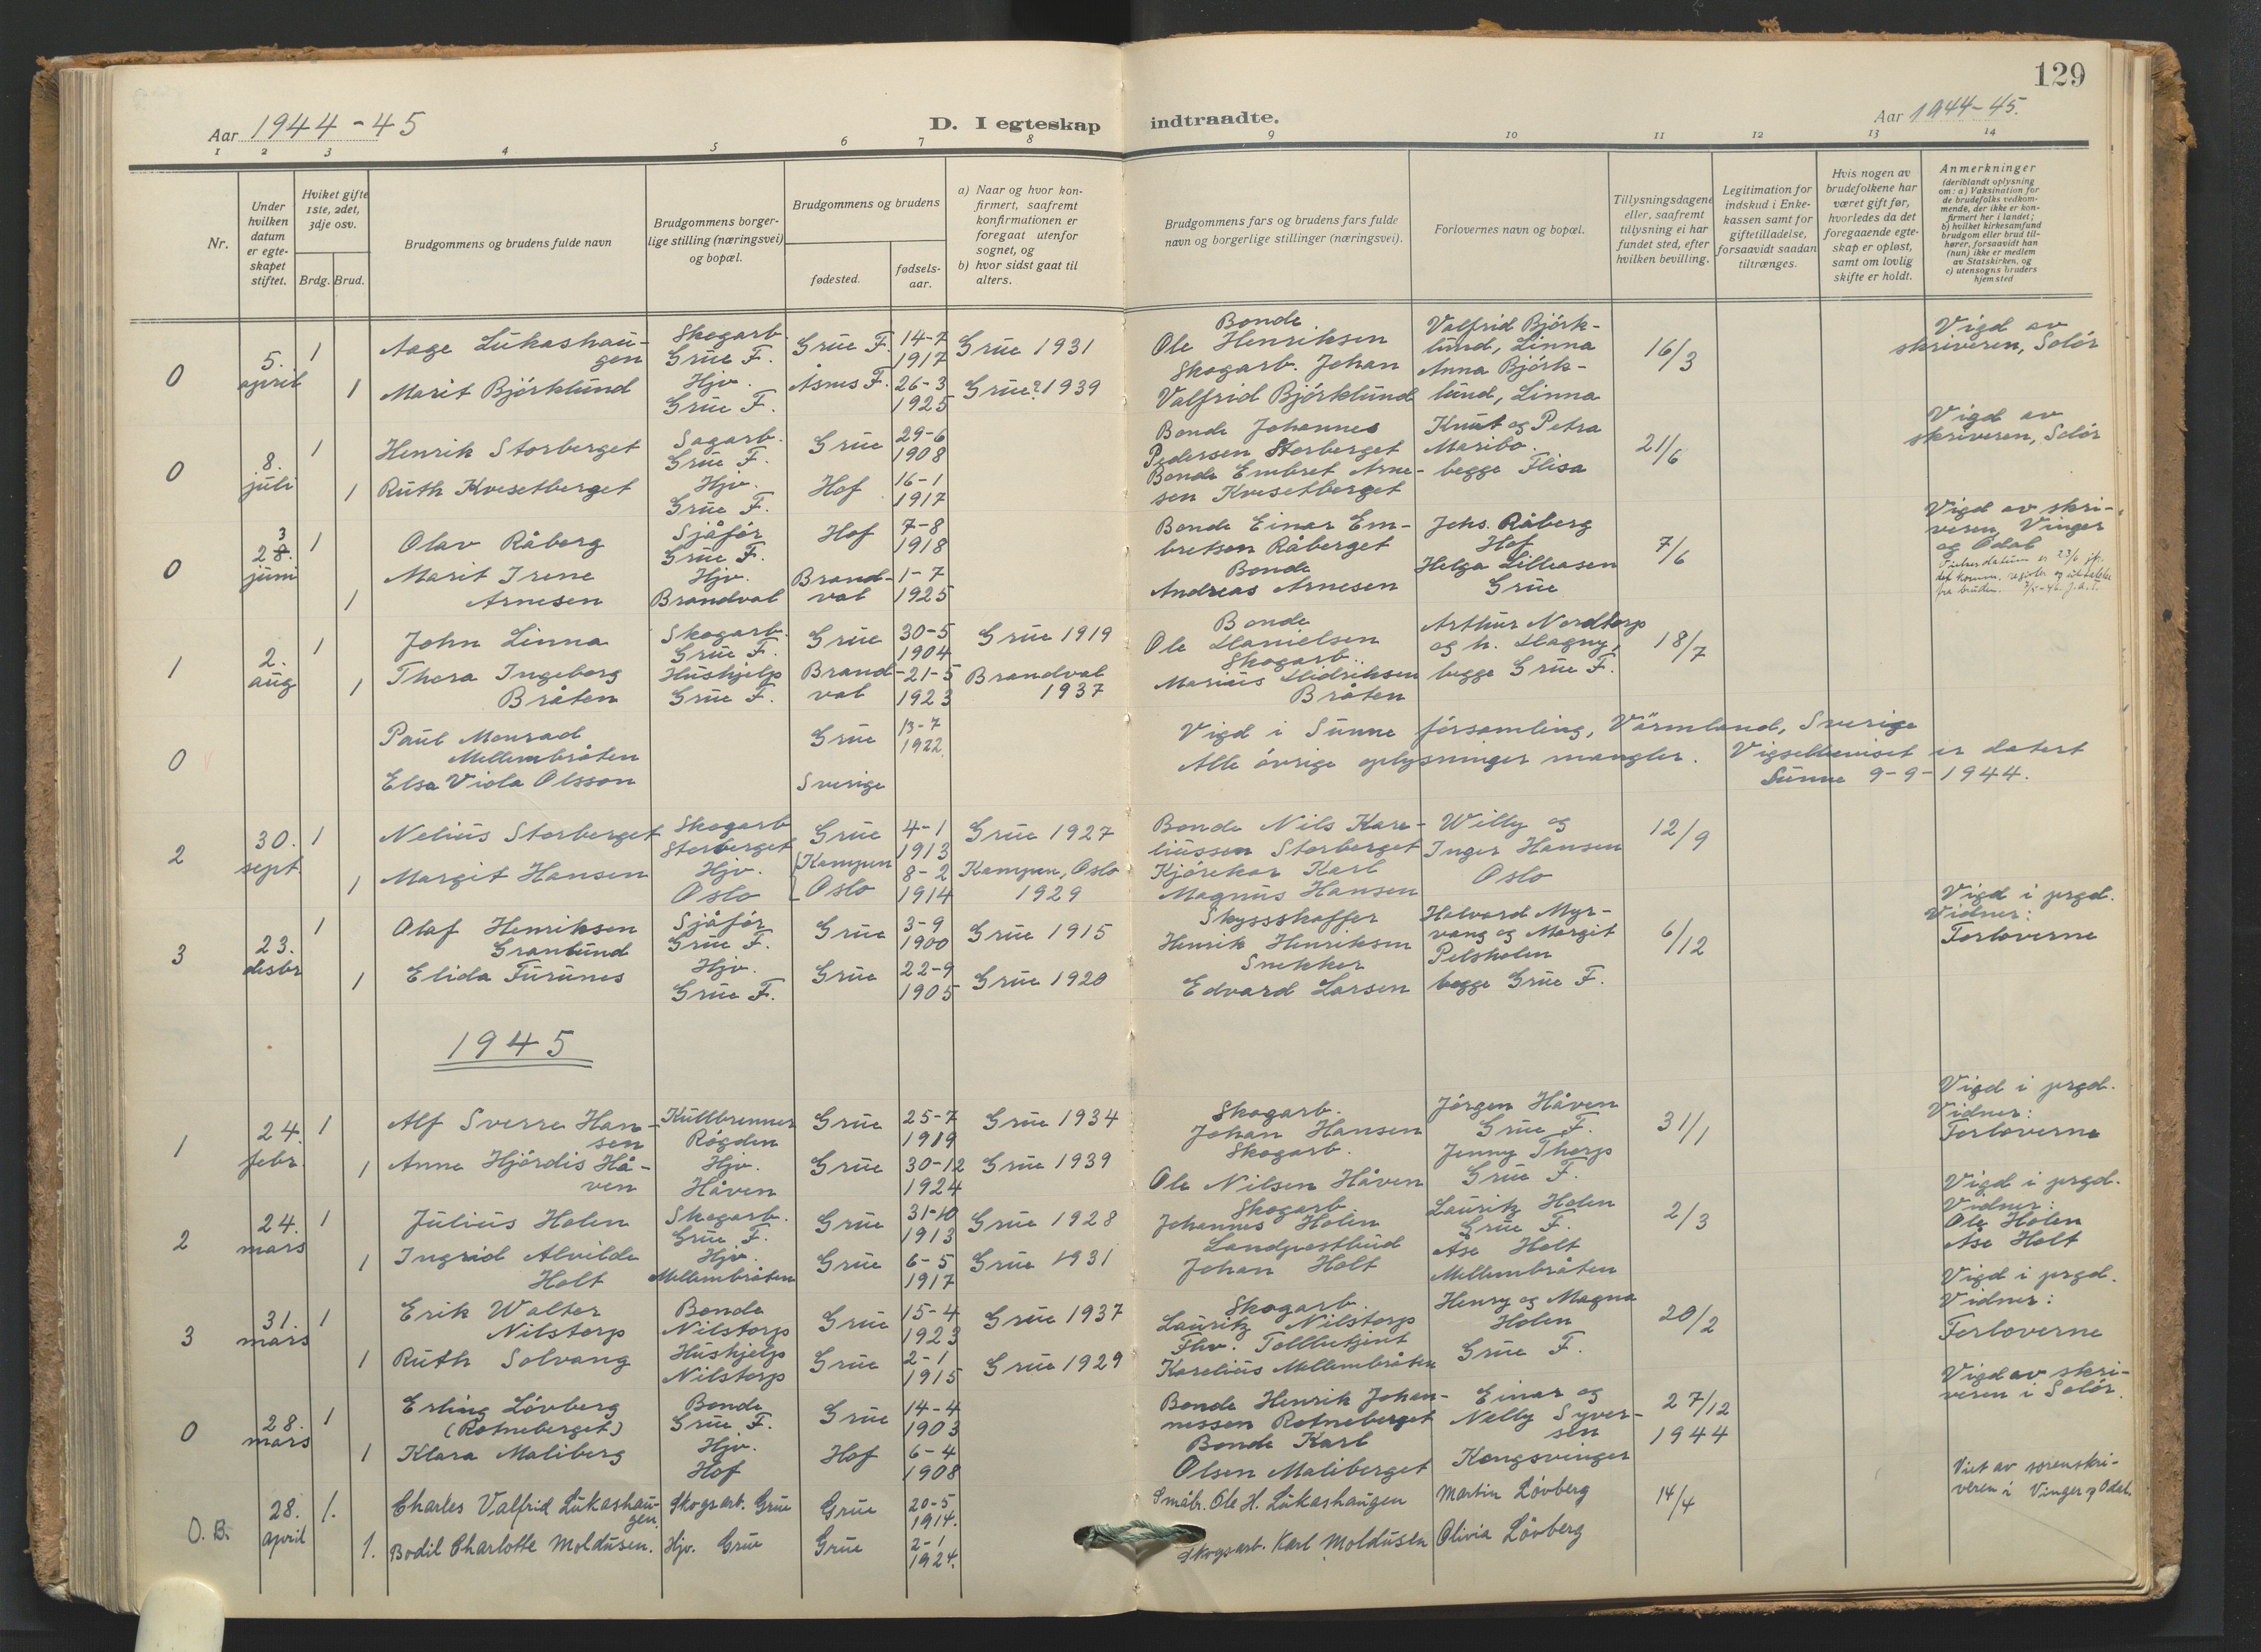 129
Aar 1944-45
D. I egteskap indtraadte.
Aar 1944-45.
1 2 3 4 5 6 7 8 9 10 11 12 13 14
Nr.
Under
hvilken
datum
er egte-
skapet
stiftet.
Hviket gifte
1ste, 2det,
3dje osv.
Brdg. Brud.
Brudgommens og brudens fulde navn
Brudgommens borger-
lige stilling (næringsvei)
og bopæl.
Brudgommens og brudens
fødested.
fødsels-
aar.
a) Naar og hvor kon-
firmert, saafremt
konfirmationen er
foregaat utenfor
sognet, og
b) hvor sidst gaat til
alters.
Brudgommens fars og brudens fars fulde
navn og borgerlige stillinger (næringsvei).
Forlovernes navn og bopæl.
Tillysningsdagene
eller, saafremt
tillysning ei har
fundet sted, efter
hvilken bevilling.
Legitimation for
indskud i Enke-
kassen samt for
giftetilladelse,
forsaavidt saadan
tiltrænges.
Hvis nogen av
brudefolkene har
været gift før,
hvorledes da det
foregaaende egte-
skap er opløst,
samt om lovlig
skifte er holdt.
Anmerkninger
(deriblandt oplysning
om: a) Vaksination for
de brudefolks vedkom-
mende, der ikke er kon-
firmert her i landet;
b) hvilket kirkesamfund
brudgom eller brud til-
hører, forsaavidt han
(hun) ikke er medlem
av Statskirken, og
c) utensogns bruders
hjemsted
0
5.
april
1
Aage Lukashau-
gen
Skogarb.
Grue F.
Grue F.
14-7
1917
Grue 1931
1
Marit Björklund
Hjv.
Grue F.
Åsnes F.
26-3
1925
Grue? 1939
Bonde
Ole Henriksen
Skogarb. Johan
Valfrid Björklund
Valfrid Björk-
lund, Linna
Anna Björk-
lund, Linna
16/3
Vigd av
skriveren, Solör
0
8.
juli
1
Henrik Storberget
Sagarb.
Grue F.
Grue
29-6
1908
1
Ruth Kvesetberget
Hjv.
Grue F.
Hof
16-1
1917
Bonde Johannes
Pedersen Storberget
Bonde Embret Arne-
sen Kvesetberget
Knut og Petra
Maribo.
begge Flisa
21/6
Vigd av
skriveren, Solör
0
3
28.
juni
1
Olav Råberg
Sjåför
Grue F.
Hof
7-8
1918
1
Marit Irene
Arnesen
Hjv.
Brandval
Brand-
val
1-7
1925
Bonde Einar Em-
bretsen Råberget
Bonde
Andreas Arnesen
Johs. Råberg
Hof
Helga Lilleåsen
Grue
7/6
Vigd av skri-
veren, Vinger
og Odal
1
2.
aug
1
John Linna
Skogarb.
Grue F.
Grue
30-5
1904
Grue 1919
1
Thora Ingeborg
Bråten
Hushjelp
Grue F.
Brand-
val
21-5
1923
Brandval
1937
Bonde
Ole Danielsen
Skogarb..
Marius Didriksen
Bråten
Arthur Nordtorp
og h. Dagny,
begge Grue F.
18/7
0
Paul Monrad
Mellembråten
Grue
13-7
1922
Elsa Viola Olsson
Sverige
Vigd i Sunne församling, Värmland, Sverige
Alle övrige oplysninger mangler. Vigselbeviset er datert
Sunne 9-9-1944.
2
30.
sept.
1
Nelius Storberget
Skogarb
Storberget
Grue
4-1
1913
Grue 1927
1
Margit Hansen
Hjv.
Oslo
Kampen
Oslo
8-2
1914
Kampen, Oslo
1929
Bonde Nils Kare-
liussen Storberget
Kjörekar Karl
Magnus Hansen
Willy og
Inger Hansen
Oslo
12/9
3
23.
desbr
1
Olaf Henriksen
Granlund
Sjåför
Grue F.
Grue
3-9
1900
Grue 1915
1
Elida Furunes
Hjv.
Grue F.
Grue
22-9
1905
Grue 1920
Skyssskaffer
Henrik Henriksen
Snekker
Edvard Larsen
Halvard Myr-
vang og Margit
Pelsholen
begge Grue F.
6/12
Vigd i prgd.
Vidner:
Forloverne
1945
1
24.
febr.
1
Alf Sverre Han-
sen
Kullbrenner
Rögden
Grue
25-7
1919
Grue 1934
1
Anna Hjördis Hå-
ven
Hjv.
Håven
Grue
30-12
1924
Grue 1939
Skogarb.
Johan Hansen
Skogarb.
Ole Nilsen Håven
Jörgen Håven
Grue F.
Jenny Thorp
Grue F.
31/1
Vigd i prgd.
Vidner:
Forloverne
2
24.
mars
1
Julius Holen
Skogarb.
Grue F.
Grue
31-10
1913
Grue 1928
1
Ingrid Alvilde
Holt
Hjv.
Mellembråten
Grue
6-5
1917
Grue 1931
Skogarb.
Johannes Holen
Landpostbud
Johan Holt
Lauritz Holen
Grue F.
Åse Holt
Mellembråten
2/3
Vigd i prgd.
Vidner:
Ole Holen
Åse Holt
3
31.
mars
1
Erik Walter
Nilstorp
Bonde
Nilstorp
Grue
15-4
1923
Grue 1937
1
Ruth Solvang
Hushjelp
Nilstorp
Grue
2-1
1915
Grue 1929
Skogarb.
Lauritz Nilstorp
Fhv. Tollbetjent
Karelius Mellembråten
Henry og Magna
Holen
Grue F.
20/2
Vigd i prgd.
Vidner:
Forloverne
0
28.
mars
1
Erling Lövberg
(Rotneberget)
Bonde
Grue F.
Grue
14-4
1903
1
Klara Maliberg
Hjv.
Hof
Hof
6-4
1908
Bonde Henrik Johan-
nessen Rotneberget
Bonde Karl
Olsen Maliberget
Einar og
Nelly Syver-
sen
Kongsvinger
27/12
1944
Vigd av skri-
veren i Solör.
O.B.
28.
april
1.
Charles Valfrid Lukashau-
gen.
Skogsarb. Grue
Grue
20-5
1914.
1.
Bodil Charlotte Moldusen.
Hjv. Grue
Grue
2-1
1924.
Småbr. Ole H. Lukashaugen
Skogsarb. Karl Moldusen
Martin Lövberg
Olivia Lövberg
14/4
Viet av sorenskri-
veren i Vinger og Odal.